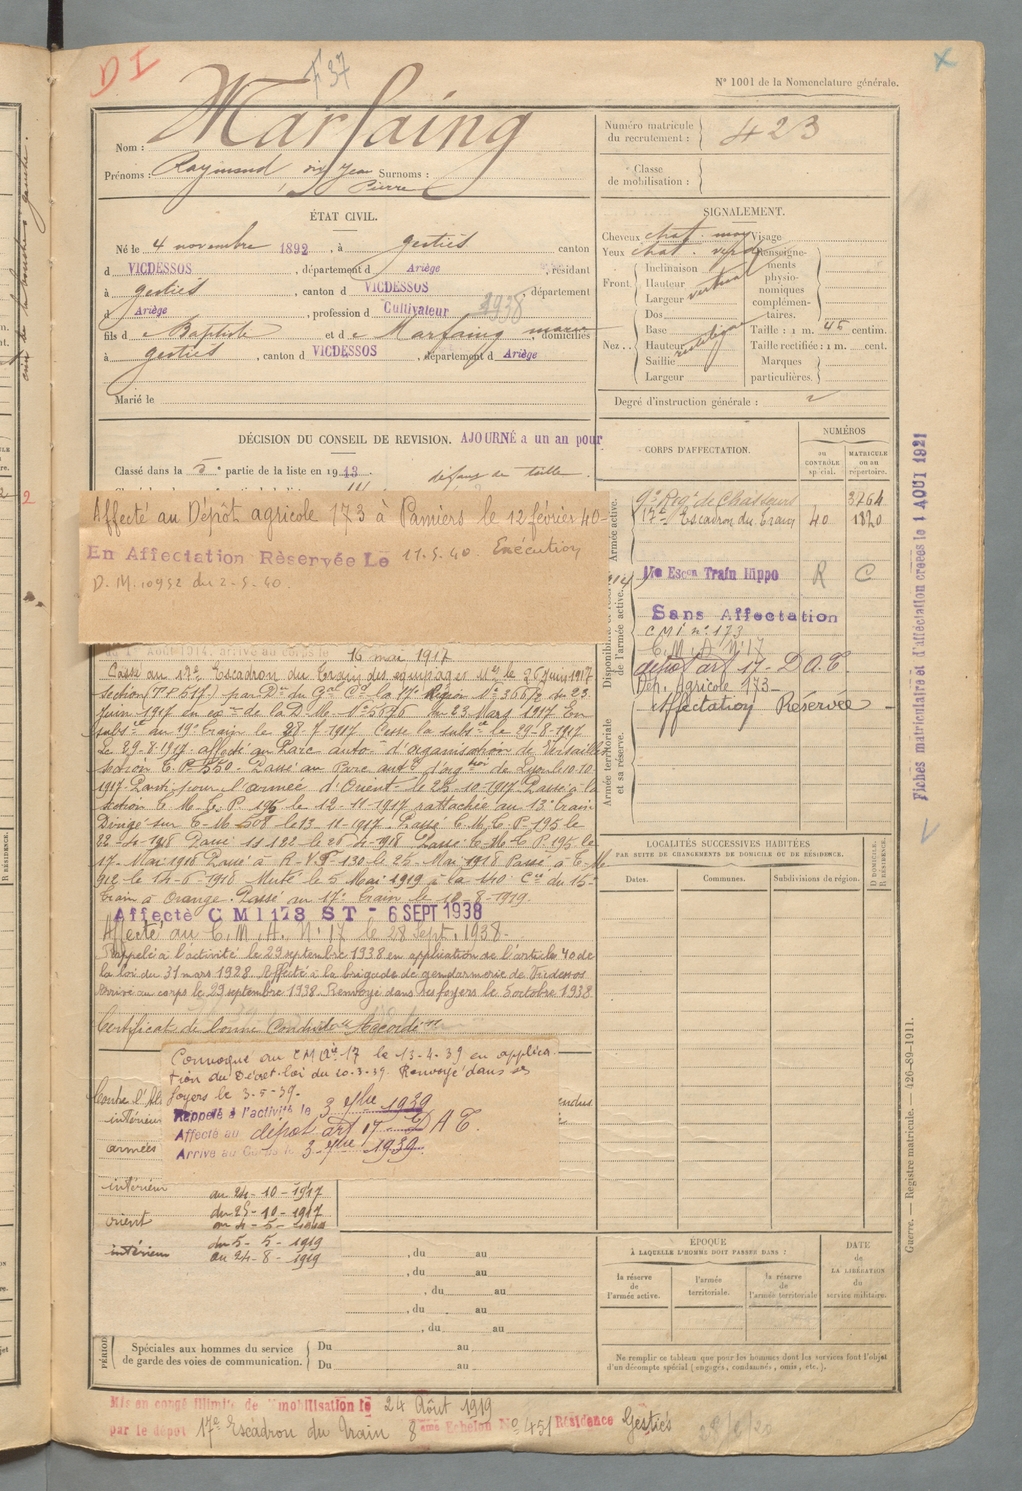 D I
F 37
Nº 1001 de la Nomenclature générale.
Nom : Marfaing
Prénoms : Raymond dit Jean Pierre Surnoms :
Numéro matricule du recrutement : 423
Classe de mobilisation :
ÉTAT CIVIL.
Né le 4 novembre 1892, à Gestiès canton
d VICDESSOS, département d Ariège, résidant
à Gestiès, canton d VICDESSOS département
d Ariège, profession d Cultivateur 1938
fils d e Baptiste et d e Marfaing domiciliés
à Gestiès, canton d VICDESSOS, département d Ariège
Marié le
SIGNALEMENT.
Cheveux chat. moy Visage
Yeux chat. verd Renseignements physionomiques complémentaires.
Front. Inclinaison Hauteur Largeur vertical
Nez. Dos Base Hauteur Saillie Largeur rectiligne
Taille : 1 m. 45 centim.
Taille rectifiée : 1 m. cent.
Marques particulières.
Degré d'instruction générale : 2
DÉCISION DU CONSEIL DE REVISION. AJOURNÉ a un an pour
Classé dans la 5e partie de la liste en 1913. défaut de taille
Affecté au Dépôt agricole 173 à Pamiers le 12 février 40
En Affectation Réservée Le 11.5.40. Exécution
D.M. 10952 du 2-5-40.
16 mai 1917
Passé au 17e Escadron du Train des équipages le 26 Juin 1917
section (T.P. 517) par Don du Gal Ct la 17e Région No 366/2 du 23
Juin 1917 en de la D.M. No 5676 du 23 Mars 1917 En
subsce du 19e Train le 28 7 1917. Cesse la subsce le 29-8-1917
Le 29-8-1917 affecté au Parc auto. d'organisation de Versailles
section T.P. 550. Passé au Parc auto d'orgtion de Lyon le 10.10.
1917 Parti pour l'armée d'Orient le 25-10-1917 Passé à la
section T.M.T.P. 195 le 12-11-1917 rattachée au 13e Train
Dirigé sur T.M. 508 le 13-11-1917. Passé T.M.T.P. 195 le
22-4-1918 Passé le 26-4-1918 Passé T.M.T.P. 195 le
17 Mai 1918 Passé à R.V.F. 130 le 25 Mai 1918 Passé à T.M.
912 le 14-6-1918 Muté le 5 Mai 1919 à la 140 Cie du 15e
Train à Orange. Passé au 17e Train le 1919.
Affecté C M I 173 S T - 6 SEPT 1938
Affecté au C.M.A. N. 17 le 28 Sept. 1938.
Rappelé à l'activité le 29 septembre 1938 en application de l'article 40 de
la loi du 31 mars 1928. Affecté à la brigade de gendarmerie de Vicdessos
Arrivé au corps le 29 septembre 1938. Renvoyé dans ses foyers le 5 octobre 1938
Certificat de bonne Conduite "Accordé"
Convoqué au C M 17 le 13-4-39 en applica-
tion du Décret-loi du 20-3-39. Renvoyé dans ses
foyers le 3-5-39.
Rappelé à l'activité le 3 7bre 1939
Affecté au dépôt art 17 D A T.
Arrivé au Corps le 3 7bre 1939
Contre l'All
intérieur
armées
intérieur au 24-10-1917
orient du 25-10-1917
intérieur du 5-5-1919
au 24-8-1919
, du au
, du au
, du au
, du au
, du au
PÉRIOD
Spéciales aux hommes du service de garde des voies de communication.
Du au
Du au
Mis en congé illimité de démobilisation le 24 Août 1919
par le dépôt 17e Escadron du Train 8ème Echelon No 451 Résidence Gestiès
CORPS D'AFFECTATION.
NUMÉROS
au CONTRÔLE spécial.
MATRICULE ou au répertoire.
Armée active.
9e Régt de Chasseurs 3264
17e Escadron du Train 40 1820
Disponibilité et réserve de l'armée active.
17e Escon Train Hippo R C
Sans Affectation
C M I n° 173
C.M.A. N. 17
dépôt art 17 - D A T.
Dép. Agricole 173
Affectation Réservée
Armée territoriale et sa réserve.
LOCALITÉS SUCCESSIVES HABITÉES
PAR SUITE DE CHANGEMENTS DE DOMICILE OU DE RÉSIDENCE.
Dates.
Communes.
Subdivisions de région.
D DOMICILE. R RÉSIDENCE.
ÉPOQUE
À LAQUELLE L'HOMME DOIT PASSER DANS :
la réserve de l'armée active.
l'armée territoriale.
la réserve de l'armée territoriale
DATE de LA LIBÉRATION du service militaire.
Ne remplir ce tableau que pour les hommes dont les services font l'objet
d'un décompte spécial (engagés, condamnés, omis, etc.).
Fiches matriculaire et d'affectation créées le 1 AOUT 1921
Guerre. — Registre matricule. — 426-89-1911.